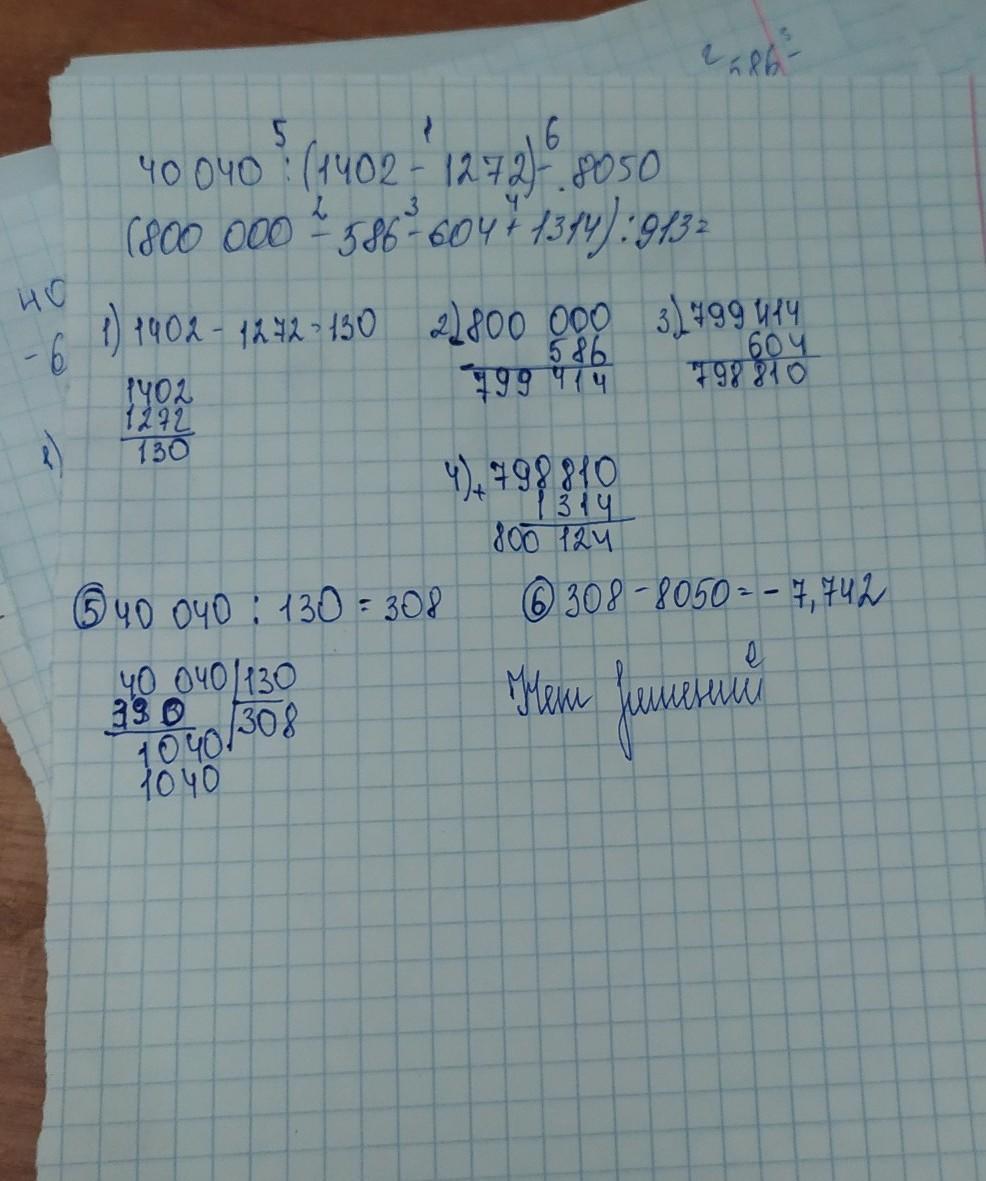 2 586 3 -
5 1 6
40 040 : (1402 - 1272) - . 8050
2 3 4
(800 000 - 586 - 604 + 1314) : 913 =
40
- 6
2)
1) 1402 - 1272 = 130
1402
1272
130
2) - 800 000
586
799 414
3) - 799 414
604
798 810
4) + 798 810
1314
800 124
5 40 040 : 130 = 308
6 308 - 8050 = - 7,742
40 040 | 130
390 | 308
1040
1040
Нет решений
е